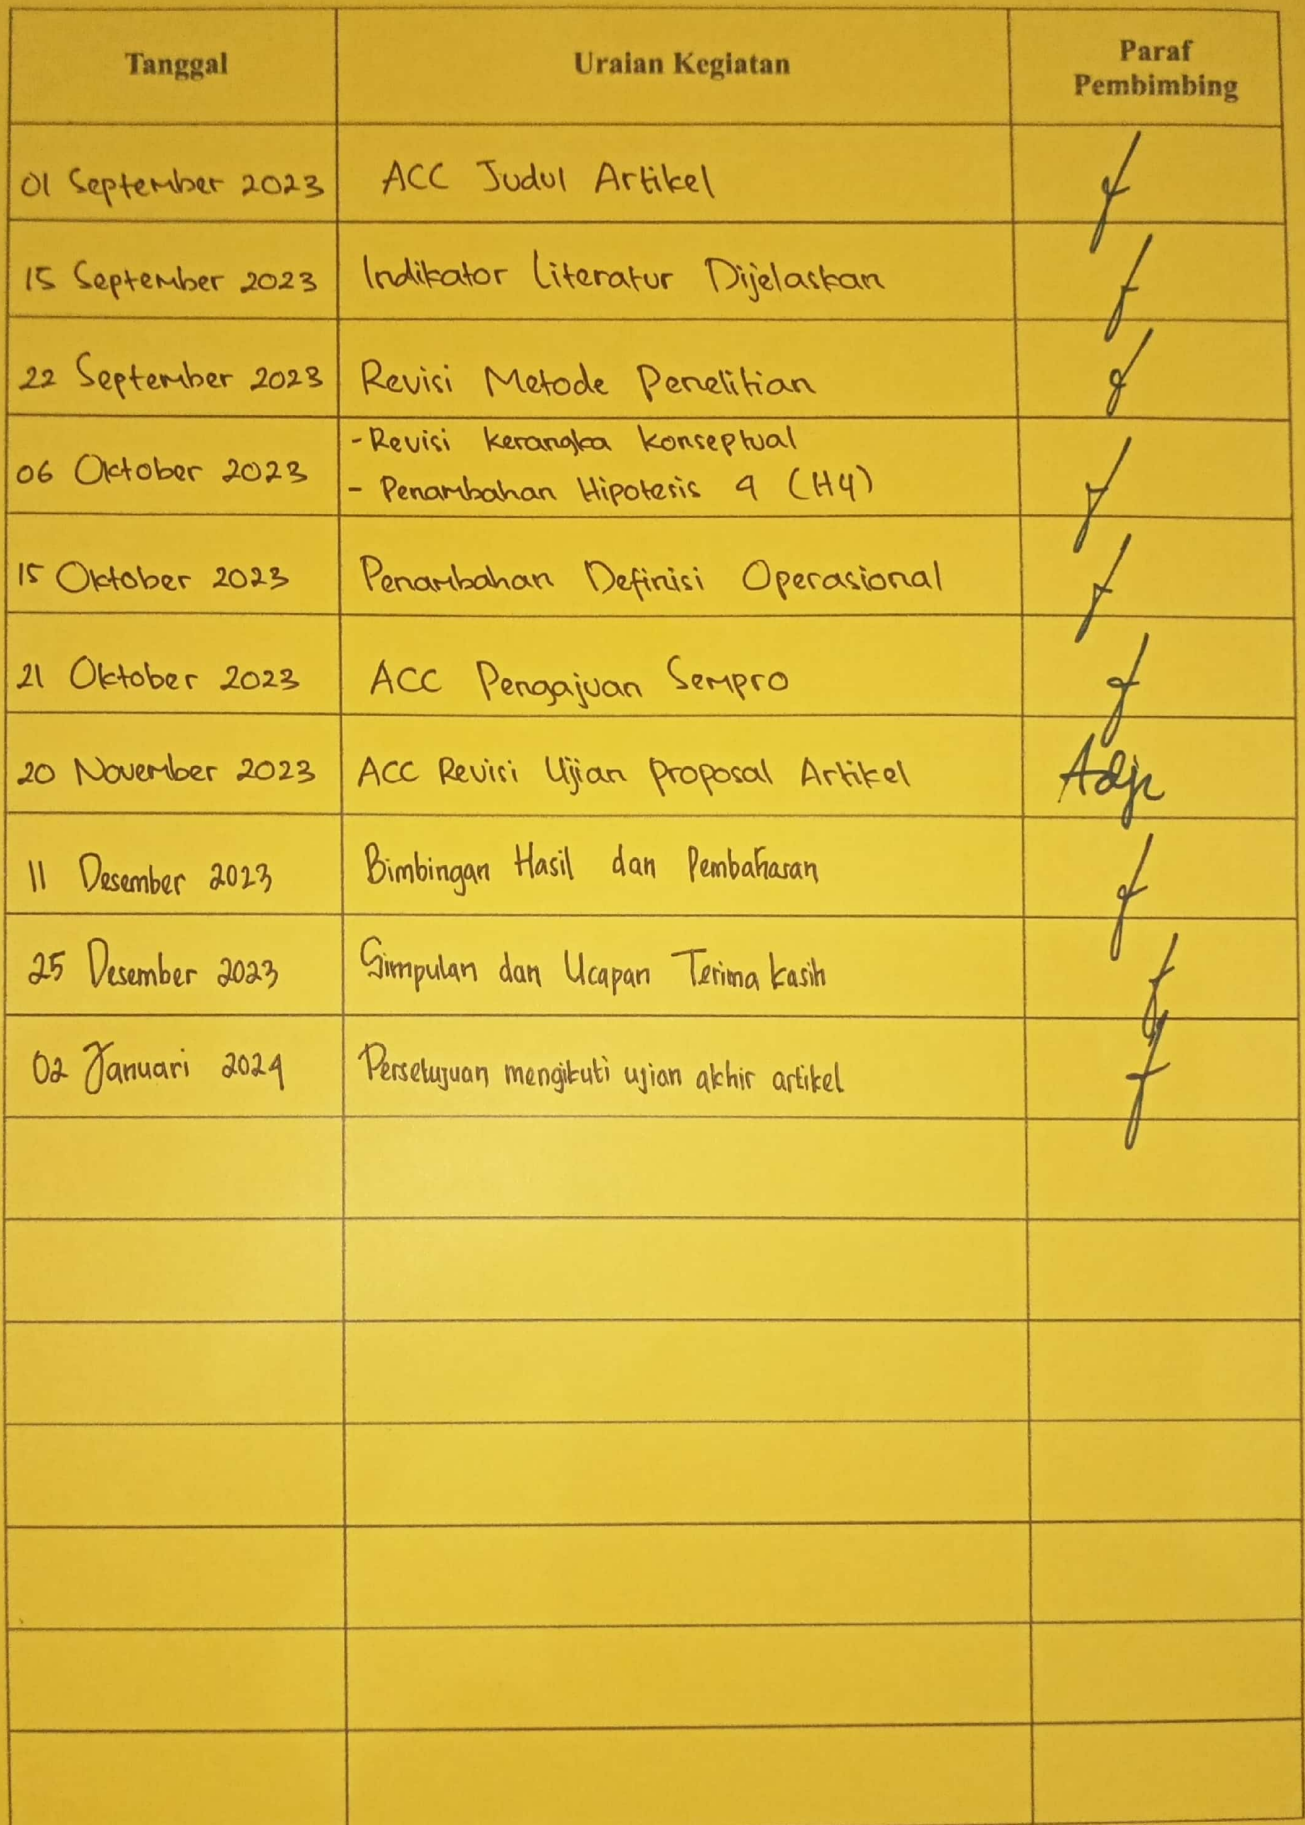 Tanggal
Uraian Kegiatan
Paraf
Pembimbing
01 September 2023
ACC Judul Artikel
15 September 2023
Indikator Literatur Dijelaskan
22 September 2023
Revisi Metode Penelitian
06 Oktober 2023
- Revisi kerangka konseptual
- Penambahan Hipotesis 4 (H4)
15 Oktober 2023
Penambahan Definisi Operasional
21 Oktober 2023
ACC Pengajuan Sempro
20 November 2023
ACC Revisi Ujian Proposal Artikel
11 Desember 2023
Bimbingan Hasil dan Pembahasan
25 Desember 2023
Simpulan dan Ucapan Terima kasih
02 Januari 2024
Persetujuan mengikuti ujian akhir artikel